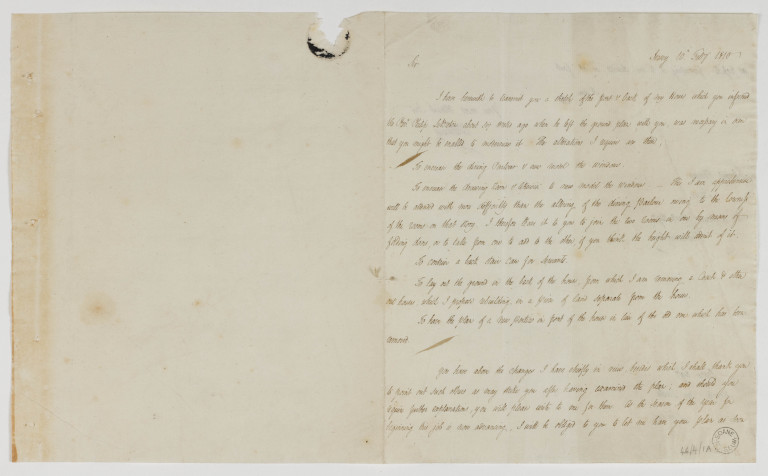 Sir
I have herewith to transmit you a sketch of the front & back of my House which you informed
the Honble Philip about six weeks ago when he left the ground plan with you was necessary in order
that you might be enabled to it. The alterations I require are these.
To increase the dining Parlour & new model the windows.
To increase the drawing Room & to new model the windows. This I am apprehensive
will be attended with more difficulty than the altering of the dining parlour owing to the lowness
of the rooms on that story. I therefore leave it to you to join the two rooms in one by means of
folding doors or to take from one to add to the other if you think the height will admit of it.
To contrive a back stair case for servants.
To lay out the ground in the back of the house, from which I am removing a Barn & other
out houses which I propose rebuilding on a piece of land separate from the house.
To have the plan of a new portico in front of the house in lieu of the old one which has been
removed.
You have above the changes I have chiefly in view besides which I shall thank you
to point out such others as may strike you after having examined the plan; and should you
require further explanations, you will please write to me for them. As the season of the year for
beginning this job is now advancing, I will be obliged to you to let me have your plan as soon